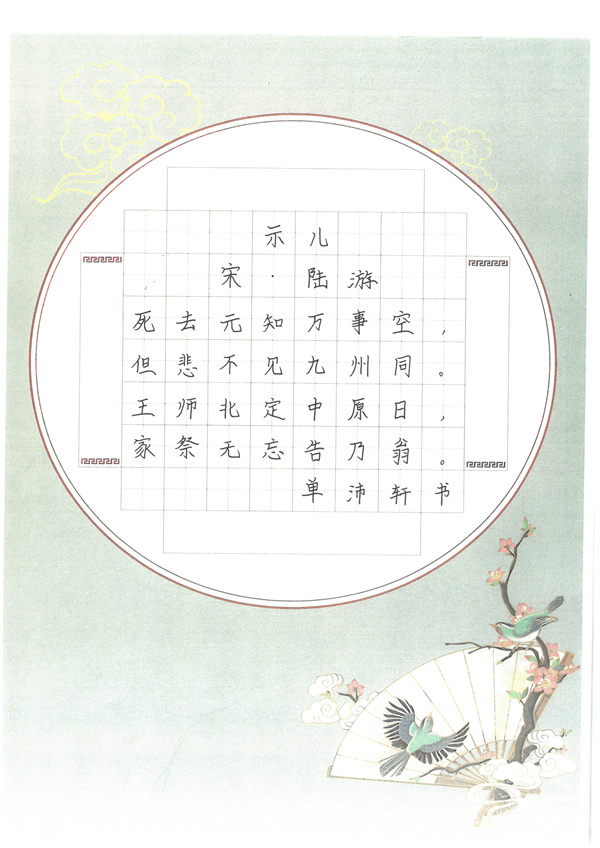 示儿
宋·陆游
死去元知万事空，
但悲不见九州同。
王师北定中原日，
家祭无忘告乃翁。
单沛轩书